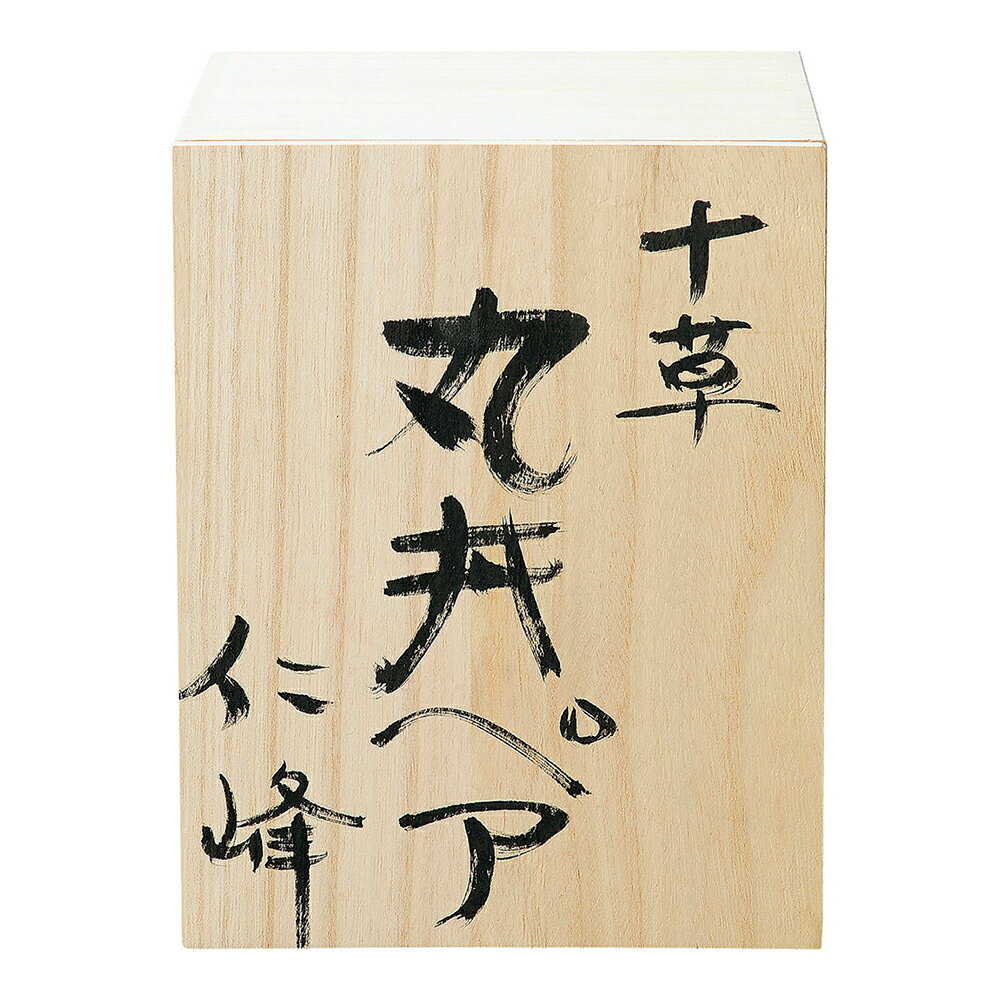 十草
丸井ペア
仁峰